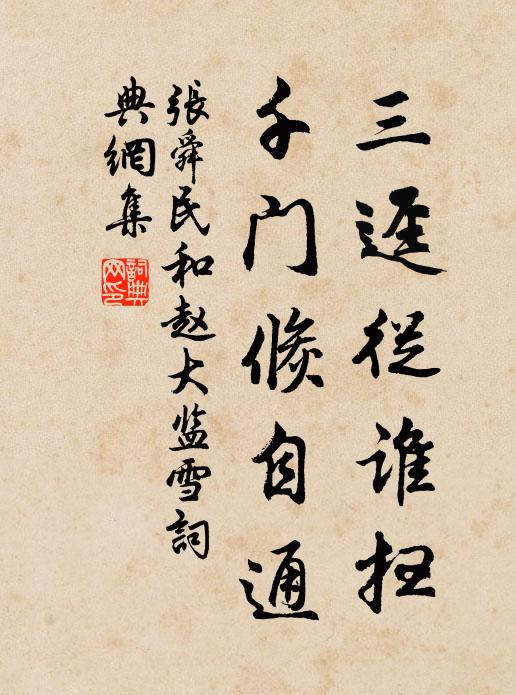 三逕從誰扫
千門倐自通
張舜民和赵大监雪詞
典網集
詞典
网印